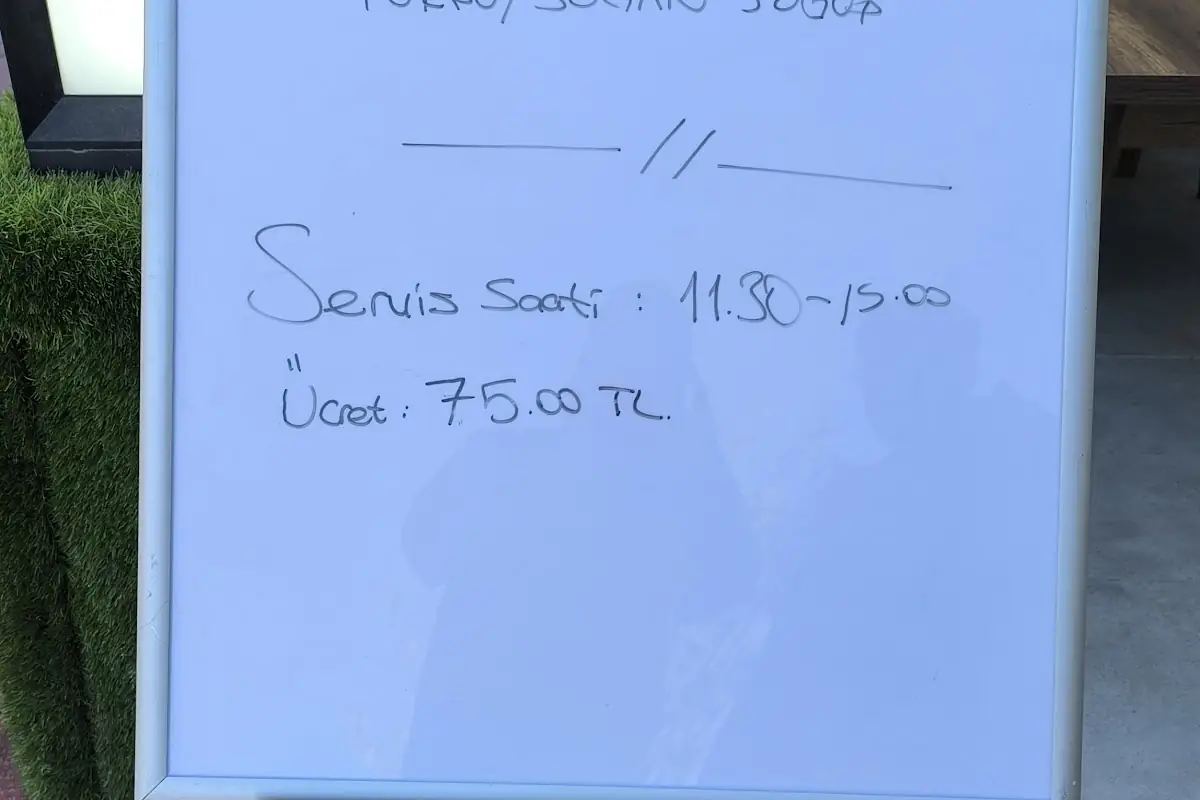 Servis Saati : 11.30-15.00
Ücret : 75.00 TL.